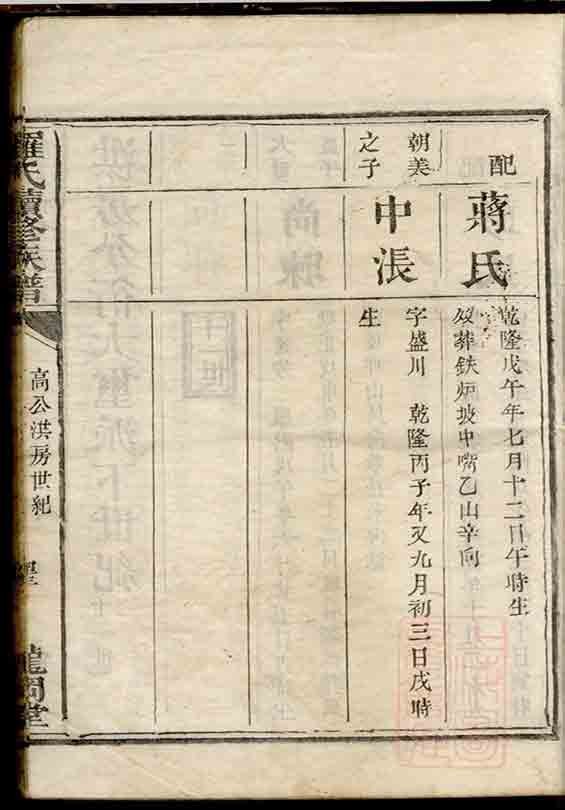 配
蔣氏
乾隆戊午年七月十二日午時生
歿葬鉄炉坡中嘴乙山辛向
朝美
之子
中漲
字盛川 乾隆丙子年又九月初三日戌時
生
羅氏續修族譜
高公洪房世紀